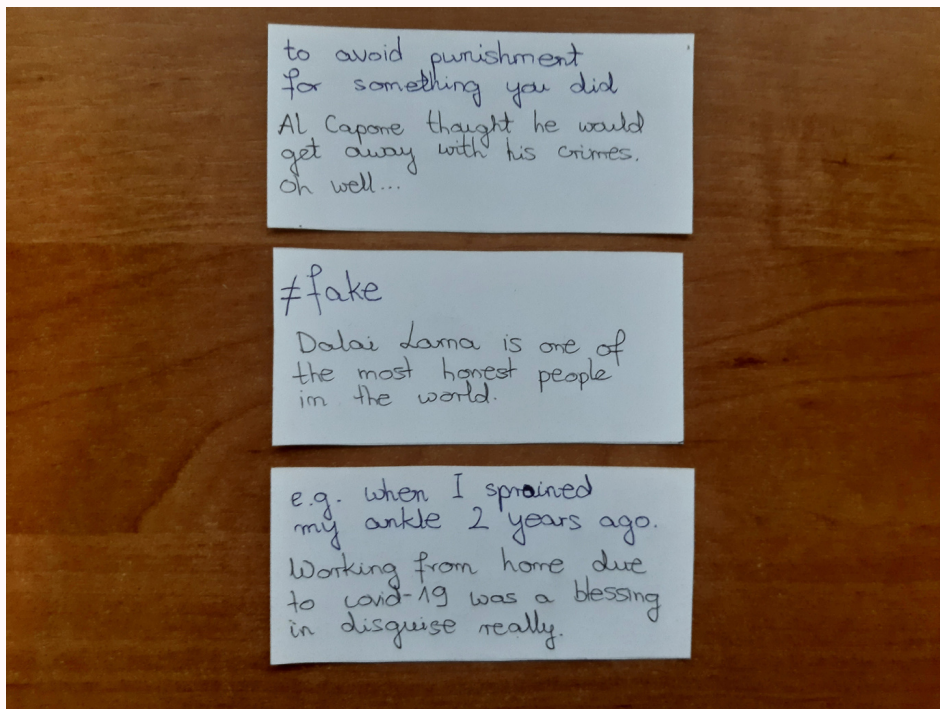 to avoid punishment
for something you did
Al Capone thought he would
get away with his crimes.
Oh well...
≠fake
Dalai Lama is one of
the most honest people
in the world.
e.g. when I sprained
my ankle 2 years ago.
Working from home due
to covid-19 was a blessing
in disguise really.